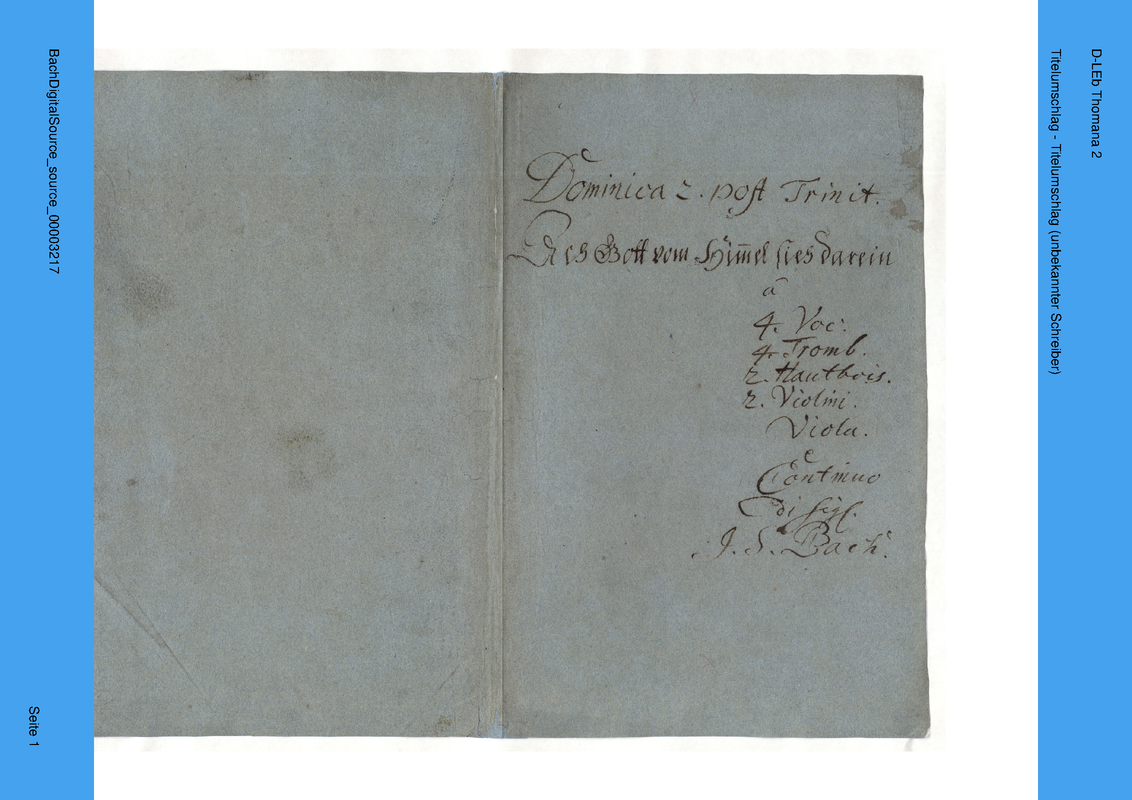 D-LEb Thomana 2
Titelumschlag - Titelumschlag (unbekannter Schreiber)
Dominica 2. post Trinit.
Ach Gott vom Him̅el sieh darein
à
4. Voc:
4. Tromb.
2. Hautbois.
2. Violini.
Viola.
Continuo
di Sigl.
J. S. Bach.
BachDigitalSource_source_00003217
Seite 1